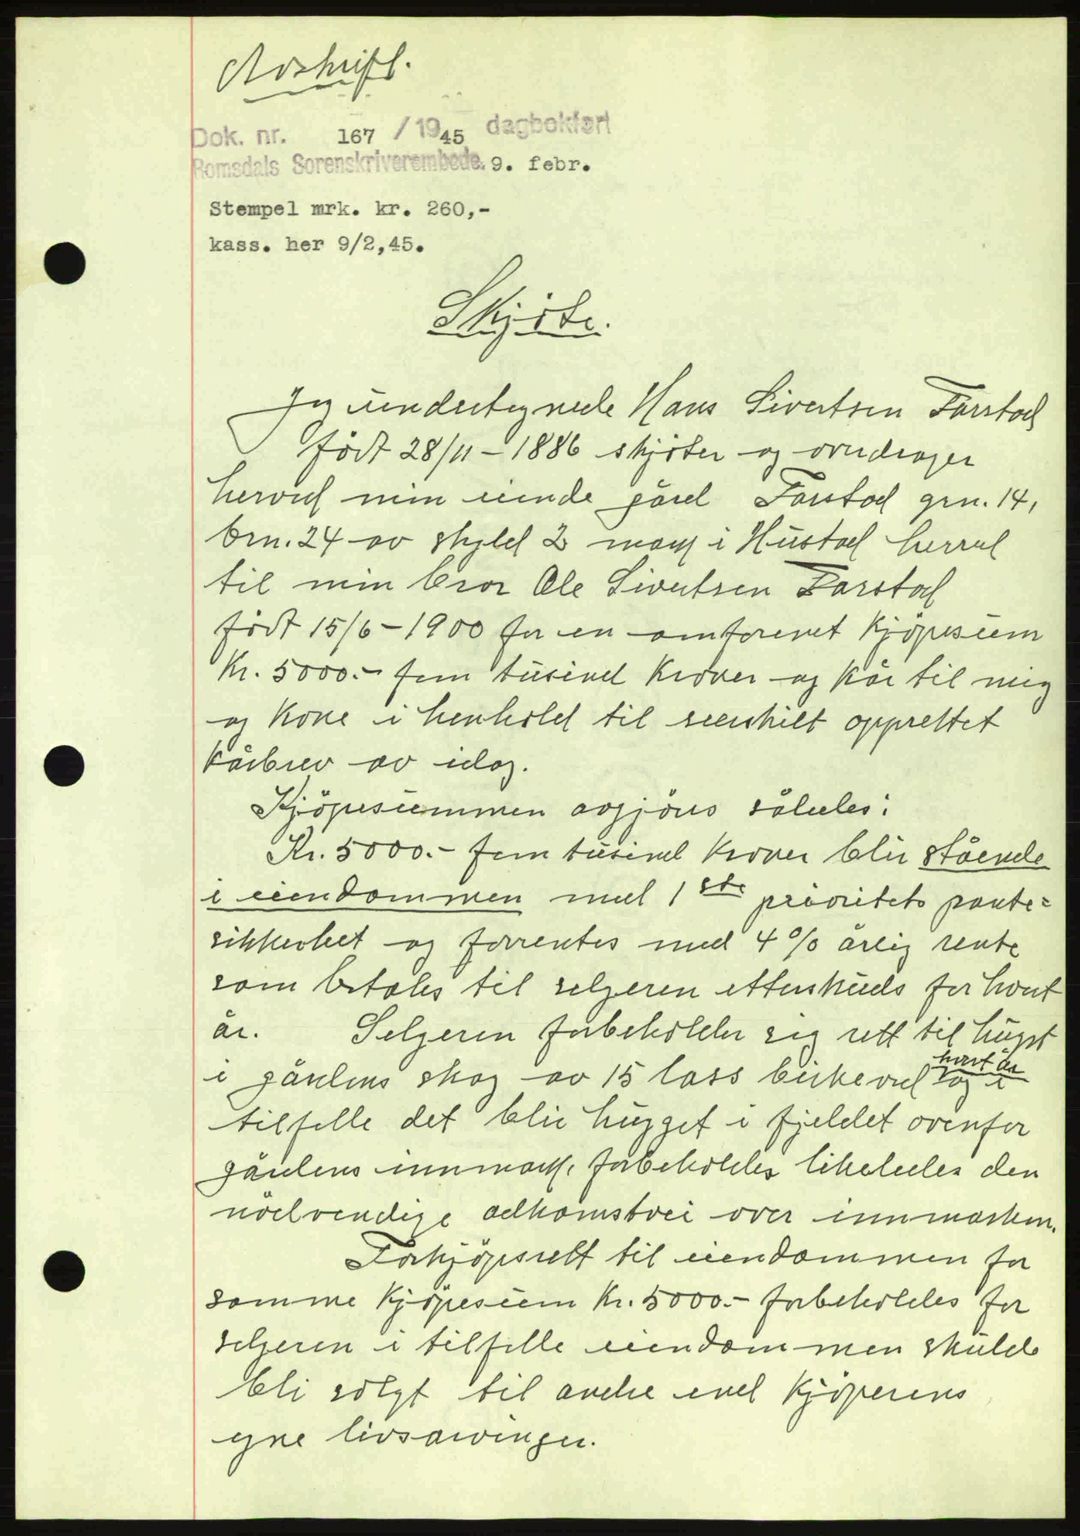 Avskrift.
Dok. nr. 167 / 1945 dagbokført
Romsdals Sorenskriverembede. 9. febr.
Stempel mrk. kr. 260,-
kass. her 9/2,45.
Skjøte.
Jeg undertegnede Hans Sivertsen Farstad
født 28/11 - 1886 skjøter og overdrager
herved min eiende gård Farstad grn. 14,
brn. 24 av skyld 2 mark i Hustad herred
til min bror Ole Sivertsen Farstad
født 15/6 - 1900 for en omforenet kjøpesum
Kr. 5000.- fem tusind kroner og kår til mig
og kone i henhold til særskilt opprettet
kårbrev av idag.
Kjöpesummen avgjöres således:
Kr. 5000.- fem tusind kroner blir stående
i eiendommen med 1ste prioritets pante=
sikkerhet og forrentes med 4 % årlig rente
som betales til selgeren etterskuds for hvert
år. Selgeren forbeholder sig rett til hugst
i gårdens skog av 15 lass birkeved hvert år og i
tilfelle det blir hugget i fjeldet ovenfor
gårdens innmark, forbeholdes likeledes den
nödvendige adkomstvei over innmarken.
Forkjöpsrett til eiendommen for
samme kjöpesum Kr. 5000.- forbeholdes for
selgeren i tilfelle eiendommen skulde
bli solgt til andre end kjöperens
egne livsarvinger.